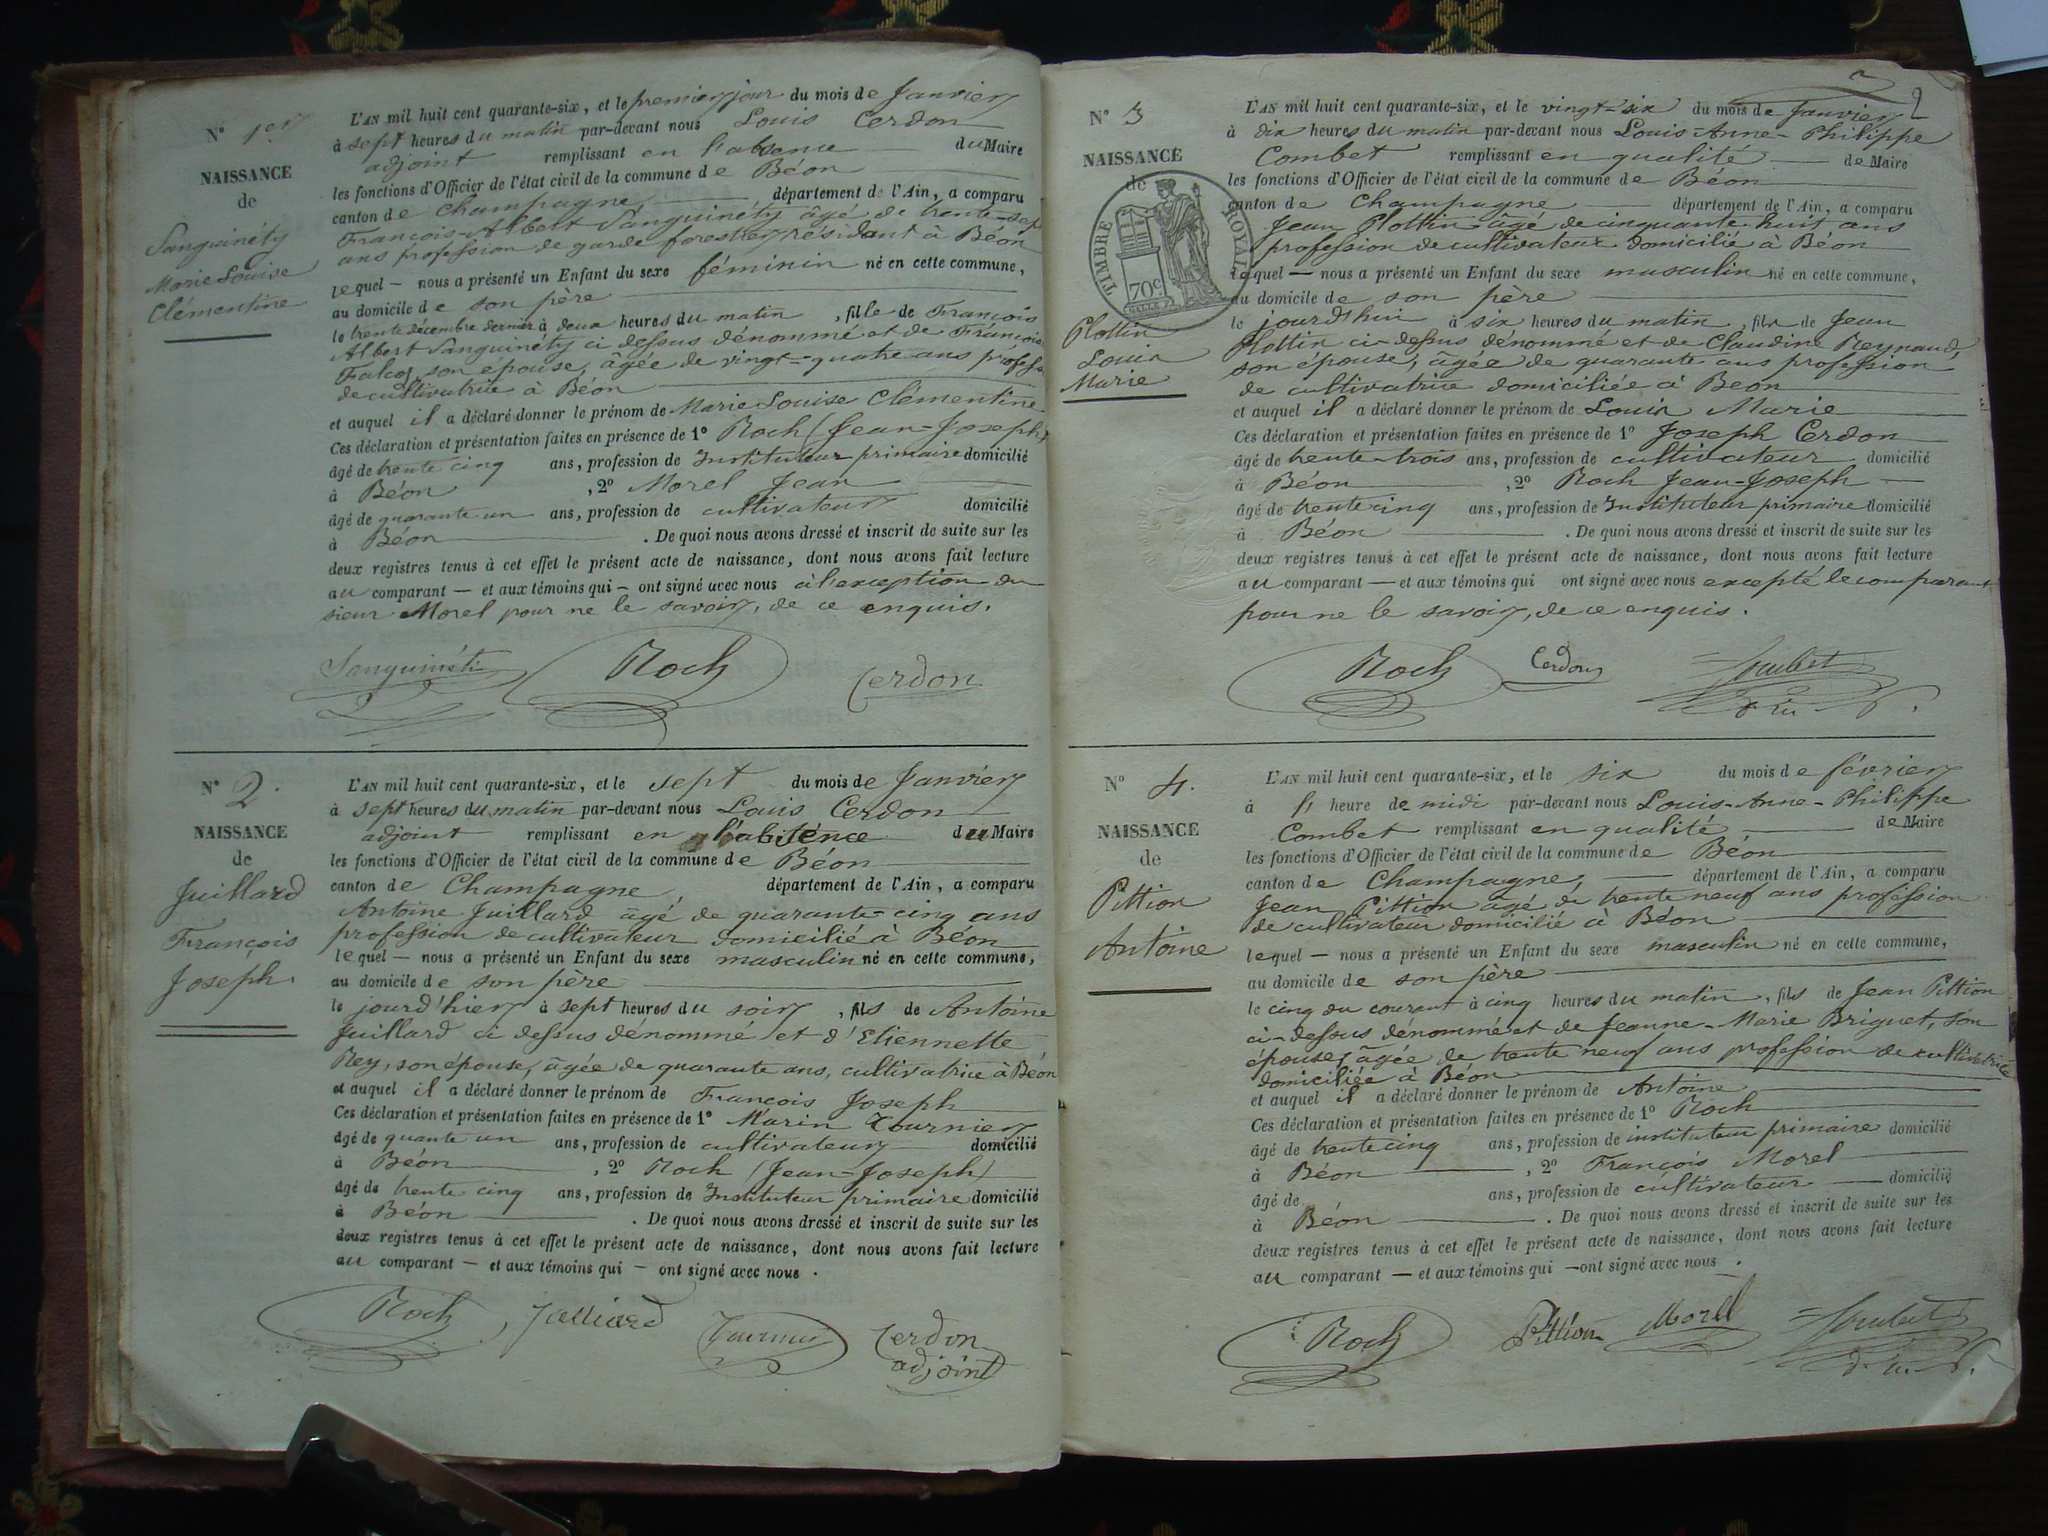 N° 1er
NAISSANCE
de
Sanguinéty
Marie Louise
Clémentine
L'AN mil huit cent quarante-six, et le premier jour du mois de Janvier
à sept heures du matin par-devant nous Louis Cerdon
adjoint remplissant en l'absence du Maire
les fonctions d'Officier de l'état civil de la commune de Béon
canton de Champagne, département de l'Ain, a comparu
François Albert Sanguinéty âgé de trente-sept
ans profession de garde forestier résidant à Béon
lequel — nous a présenté un Enfant du sexe féminin né en cette commune,
au domicile de son père
le trente décembre dernier à deux heures du matin, fille de François
Albert Sanguinéty ci dessus dénommé et de Françoise
Falcoz son épouse, âgée de vingt-quatre ans profess
de cultivatrice à Béon
et auquel il a déclaré donner le prénom de Marie Louise Clémentine
Ces déclaration et présentation faites en présence de 1° Roch (Jean-Joseph)
âgé de trente cinq ans, profession de Instituteur primaire domicilié
à Béon, 2° Morel Jean
âgé de quarante un ans, profession de cultivateur domicilié
à Béon. De quoi nous avons dressé et inscrit de suite sur les
deux registres tenus à cet effet le présent acte de naissance, dont nous avons fait lecture
au comparant — et aux témoins qui — ont signé avec nous à l'exception du
sieur Morel pour ne le savoir, de ce enquis.
Sanguinéti Roch Cerdon
N° 2.
NAISSANCE
de
Juillard
François
Joseph
L'AN mil huit cent quarante-six, et le sept du mois de Janvier
à sept heures du matin par-devant nous Louis Cerdon
adjoint remplissant en l'absence du Maire
les fonctions d'Officier de l'état civil de la commune de Béon
canton de Champagne, département de l'Ain, a comparu
Antoine Juillard âgé de quarante-cinq ans
profession de cultivateur domicilié à Béon
lequel — nous a présenté un Enfant du sexe masculin né en cette commune,
au domicile de son père
le jourd'hier à sept heures du soir, fils de Antoine
Juillard ci dessus dénommé et d'Etiennette
Rey, son épouse, âgée de quarante ans, cultivatrice à Béon
et auquel il a déclaré donner le prénom de François Joseph
Ces déclaration et présentation faites en présence de 1° Marin Tournier
âgé de quante un ans, profession de cultivateur domicilié
à Béon, 2° Roch (Jean-Joseph)
âgé de trente cinq ans, profession de Instituteur primaire domicilié
à Béon. De quoi nous avons dressé et inscrit de suite sur les
deux registres tenus à cet effet le présent acte de naissance, dont nous avons fait lecture
au comparant — et aux témoins qui — ont signé avec nous.
Roch Juilliard Tournier Cerdon
adjoint
2
N° 3
NAISSANCE
de
TIMBRE ROYAL
70c
Plottin
Louis
Marie
L'AN mil huit cent quarante-six, et le vingt-six du mois de Janvier
à dix heures du matin par-devant nous Louis-Anne-Philippe
Combet remplissant en qualité de Maire
les fonctions d'Officier de l'état civil de la commune de Béon
canton de Champagne département de l'Ain, a comparu
Jean Plottin âgé de cinquante huit ans
profession de cultivateur domicilié à Béon
lequel — nous a présenté un Enfant du sexe masculin né en cette commune,
au domicile de son père
le jourd'hui à six heures du matin, fils de Jean
Plottin ci-dessus dénommé et de Claudine Reynaud,
son épouse, âgée de quarante ans profession
de cultivatrice domiciliée à Béon
et auquel il a déclaré donner le prénom de Louis Marie
Ces déclaration et présentation faites en présence de 1° Joseph Cerdon
âgé de trente-trois ans, profession de cultivateur domicilié
à Béon, 2° Roch Jean-Joseph
âgé de trente cinq ans, profession de Instituteur primaire domicilié
à Béon. De quoi nous avons dressé et inscrit de suite sur les
deux registres tenus à cet effet le présent acte de naissance, dont nous avons fait lecture
au comparant — et aux témoins qui ont signé avec nous excepté le comparant
pour ne le savoir, de ce enquis.
Roch Cerdon Combet
N° 4.
NAISSANCE
de
Pittion
Antoine
L'AN mil huit cent quarante-six, et le six du mois de février
à heure de midi par-devant nous Louis-Anne-Philippe
Combet remplissant en qualité de Maire
les fonctions d'Officier de l'état civil de la commune de Béon
canton de Champagne, département de l'Ain, a comparu
Jean Pittion âgé de trente neuf ans profession
de cultivateur domicilié à Béon
lequel — nous a présenté un Enfant du sexe masculin né en cette commune,
au domicile de son père
le cinq du courant à cinq heures du matin, fils de Jean Pittion
ci-dessus dénommé et de Jeanne-Marie Briguet, son
épouse, âgée de trente neuf ans profession de cultivatrice
domiciliée à Béon
et auquel il a déclaré donner le prénom de Antoine
Ces déclaration et présentation faites en présence de 1° Roch
âgé de trente cinq ans, profession de instituteur primaire domicilié
à Béon, 2° François Morel
âgé de ans, profession de cultivateur domicilié
à Béon. De quoi nous avons dressé et inscrit de suite sur les
deux registres tenus à cet effet le présent acte de naissance, dont nous avons fait lecture
au comparant — et aux témoins qui — ont signé avec nous.
Roch Pittion Morel Combet